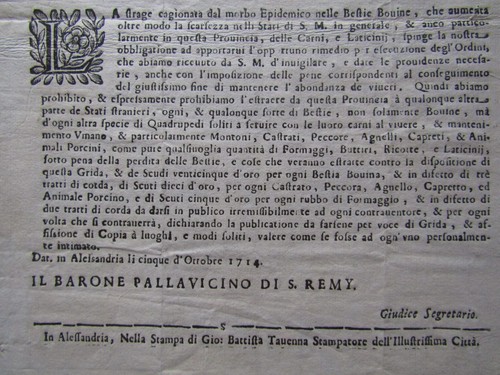 LA strage cagionata dal morbo Epidemico nelle Bestie Bouine, che aumenta
oltre modo la scarsezza nelli Stati di S. M. in generale, & anco partico-
larmente in questa Prouincia, delle Carni, e Laticinij, spinge la nostra
obbligatione ad apportarui l'opportuno rimedio per esecuzione degl'Ordini,
che abiamo riceuuto da S. M. d'inuigilare, e date le prouidenze necessa-
rie, anche con l'imposizione delle pene corrispondenti al conseguimento
del giustissimo fine di mantenere l'abondanza de viueri. Quindi abiamo
prohibito, & espressamente prohibiamo l'estraere da questa Prouincia à qualonque altra
parte de Stati stranieri, ogni, & qualonque sorte di Bestie, non solamente Bouine, mà
d'ogni altra specie di Quadrupedi soliti a seruire con le luoro carni al viuere, & mantenimento
Vmano, & particolarmente Montoni, Castrati, Peccore, Agnelli, Capretti, & Ani-
mali Porcini, come pure qualsiuoglia quantità di Formaggi, Buttiri, Ricotte, e Laticinij,
sotto pena della perdita delle Bestie, e cose che veranno estratte contro la disposizione di
questa Grida, & de Scudi venticinque d'oro per ogni Bestia Bouina, & in difetto di trè
tratti di corda, di Scuti dieci d'oro, per ogni Castrato, Peccora, Agnello, Capretto, ed
Animale Porcino, e di Scuti cinque d'oro per ogni rubbo di Formaggio, & in difetto di
due tratti di corda da darsi in publico irremissibilmente ad ogni contrauentore, & per ogni
volta che si contrauerrà, dichiarando la publicatione da farsene per voce di Grida, & af-
fissione di Copia à luoghi, e modi soliti, valere come se fosse ad ogn'vno personalmen-
te intimato.
Dat. in Alessandria li cinque d'Ottobre 1714.
IL BARONE PALLAVICINO DI S. REMY.
Giudice Segretario.
S
In Alessandria, Nella Stampa di Gio: Battista Tauenna Stampatore dell'Illustrissima Città.